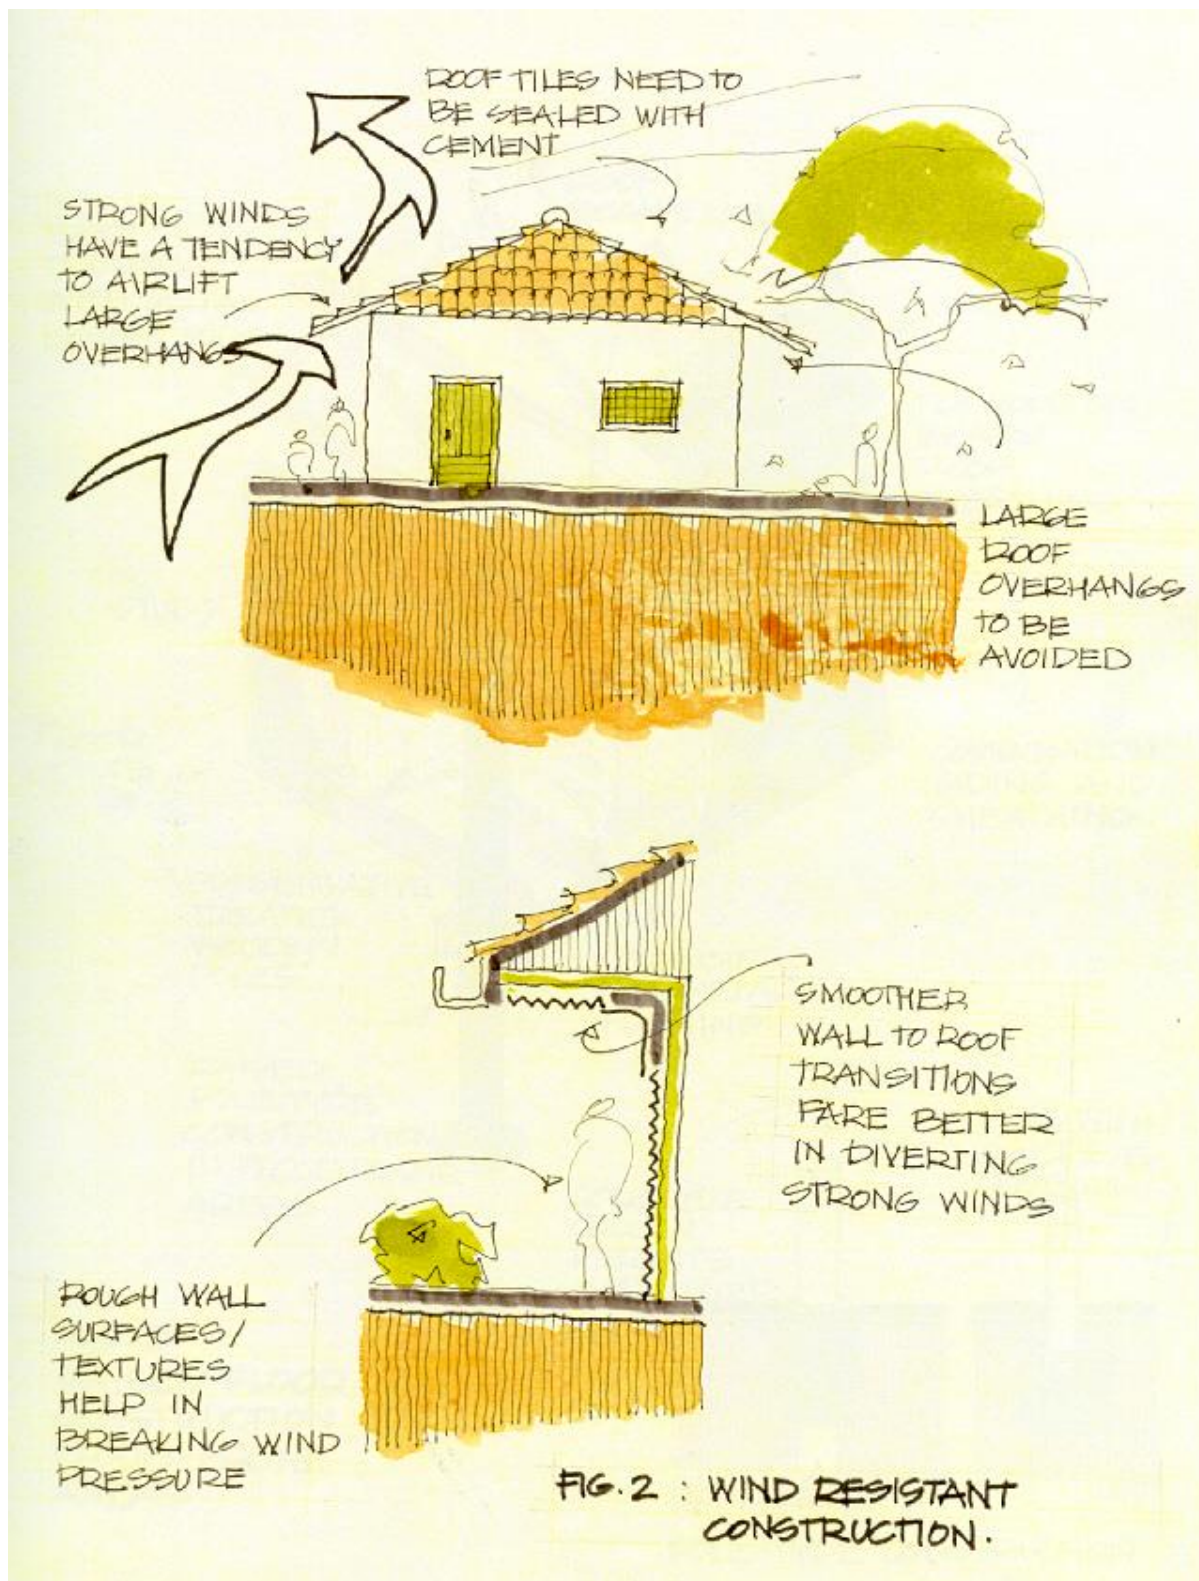 ROOF TILES NEED TO
BE SEALED WITH
CEMENT
STRONG WINDS
HAVE A TENDENCY
TO AIRLIFT
LARGE
OVERHANGS
LARGE
ROOF
OVERHANGS
TO BE
AVOIDED
SMOOTHER
WALL TO ROOF
TRANSITIONS
FARE BETTER
IN DIVERTING
STRONG WINDS
ROUGH WALL
SURFACES/
TEXTURES
HELP IN
BREAKING WIND
PRESSURE
FIG. 2 : WIND RESISTANT
CONSTRUCTION.